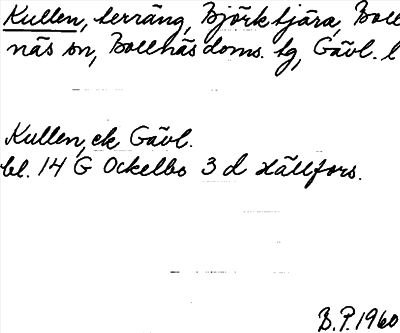 Kullen, terräng, Björktjära, Boll
näs sn, Bollnäs doms. lg, Gävl. l
Kullen, ek Gävl.
bl. 14 G Ockelbo 3 d Källfors.
B.P. 1960